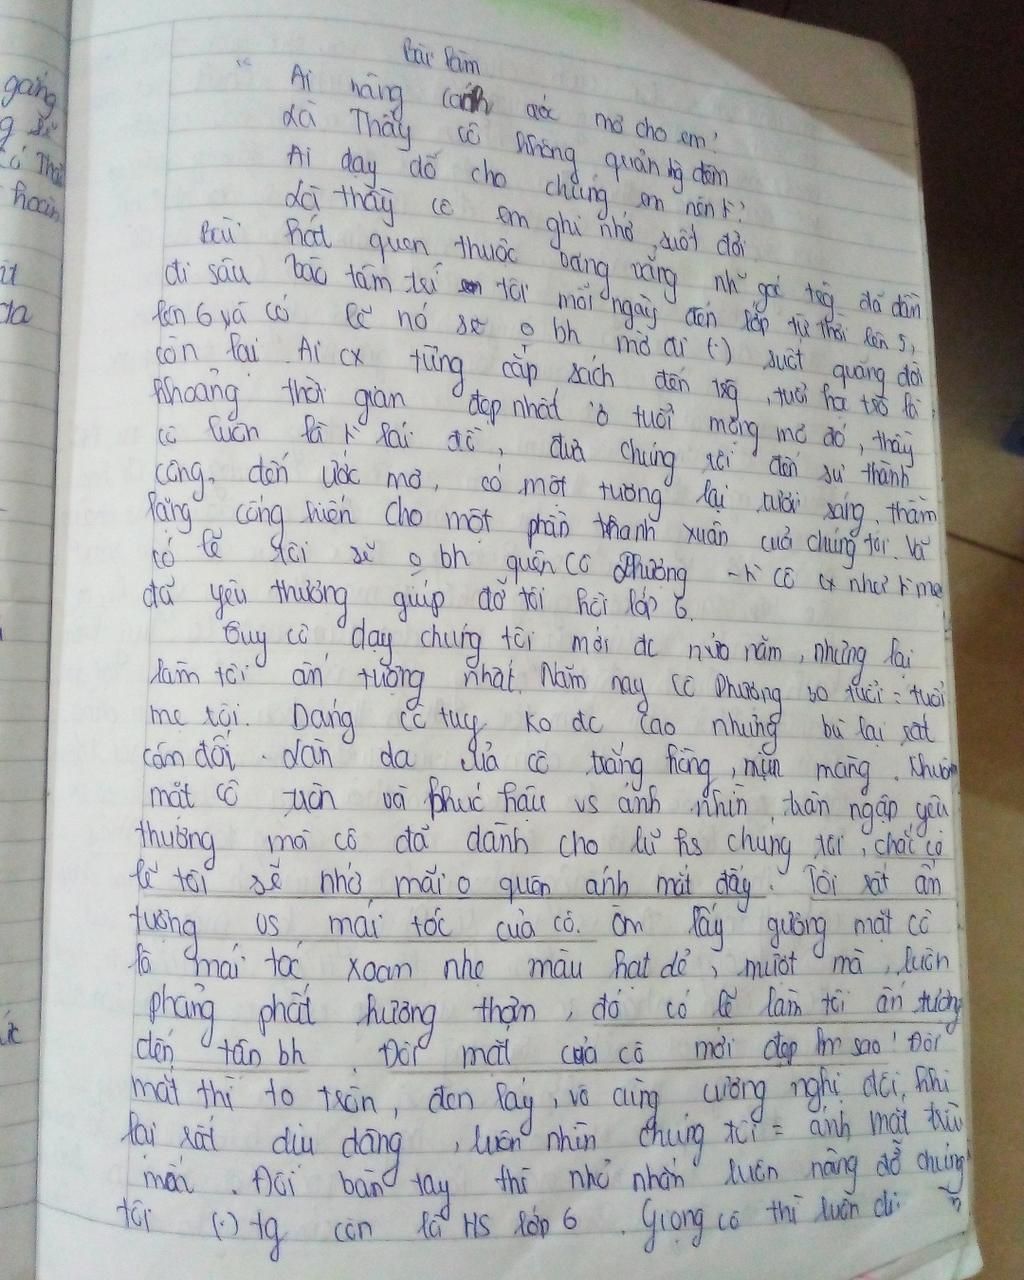 Bài làm
" Ai nâng cánh ước mơ cho em?
Là Thầy cô không quản đêm
Ai dạy dỗ cho chúng em nên
Là thầy cô em ghi nhớ suốt đời
Bài hát quen thuộc bang vẳng đã dần
đi sâu vào tâm trí tôi mỗi ngày đến lớp từ thời lên 5,
lên 6 và có lẽ nó sẽ o bh mờ đi (.) suốt quãng đời
còn lại. Ai cx từng cắp sách đến , tuổi học trò là
khoảng thời gian đẹp nhất ở tuổi mộng mơ đó, thầy
cô luôn là lái đò, đưa chúng tôi đến sự thành
công, đến ước mơ, có một tương lại tươi sáng, thầm
lặng cống hiến cho một phần thanh xuân của chúng tôi. Và
có lẽ tôi sẽ o bh quên cô Phương - cô cx như mẹ
đã yêu thương giúp đỡ tôi hồi lớp 6.
Tuy cô dạy chúng tôi mới đc nửa năm, nhưng lại
làm tôi ấn tượng nhất. Năm nay cô Phương tuổi = tuổi
mẹ tôi. Dáng cô tuy ko đc cao nhưng bù lại rất
cân đối. Làn da của cô trắng hồng, mịn màng. Khuôn
mặt cô tròn và phúc hậu vs ánh nhìn tràn ngập yêu
thương mà cô đã dành cho lũ hs chúng tôi, chắc có
lẽ tôi sẽ nhớ mãi o quên ánh mắt đấy. Tôi rất ấn
tượng vs mái tóc của cô. Ôm lấy gương mặt cô
là mái tóc xoăn nhẹ màu hạt dẻ, mượt mà, luôn
phảng phất hương thơm, đó có lẽ làm tôi ấn tượng
đến tận bh. Đôi mắt của cô mới đẹp lm sao! Đôi
mắt thì to tròn, đen láy, vô cùng cương nghị đôi khi
lại rất dịu dàng, luôn nhìn chúng tôi = ánh mắt trìu
mến. Đôi bàn tay thì nhỏ nhắn luôn nâng đỡ chúng
tôi (.) tg còn là HS lớp 6. Giọng cô thì luôn